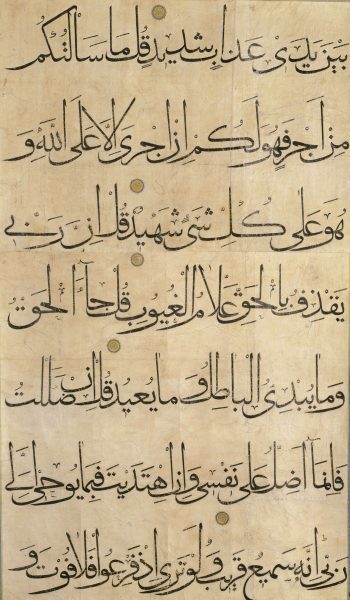 بَيْنَ يَدَيْ عَذَابٍ شَدِيدٍ قُلْ مَا سَأَلْتُكُمْ
مِنْ أَجْرٍ فَهُوَ لَكُمْ إِنْ أَجْرِيَ إِلَّا عَلَى اللَّهِ وَ
هُوَ عَلَى كُلِّ شَيْءٍ شَهِيدٌ قُلْ إِنَّ رَبِّي
يَقْذِفُ بِالْحَقِّ عَلَّامُ الْغُيُوبِ قُلْ جَاءَ الْحَقُّ
وَمَا يُبْدِئُ الْبَاطِلُ وَمَا يُعِيدُ قُلْ إِنْ ضَلَلْتُ
فَإِنَّمَا أَضِلُّ عَلَى نَفْسِي وَإِنِ اهْتَدَيْتُ فَبِمَا يُوحِي إِلَيَّ
رَبِّي إِنَّهُ سَمِيعٌ قَرِيبٌ وَلَوْ تَرَى إِذْ فَزِعُوا فَلَا فَوْتَ وَ